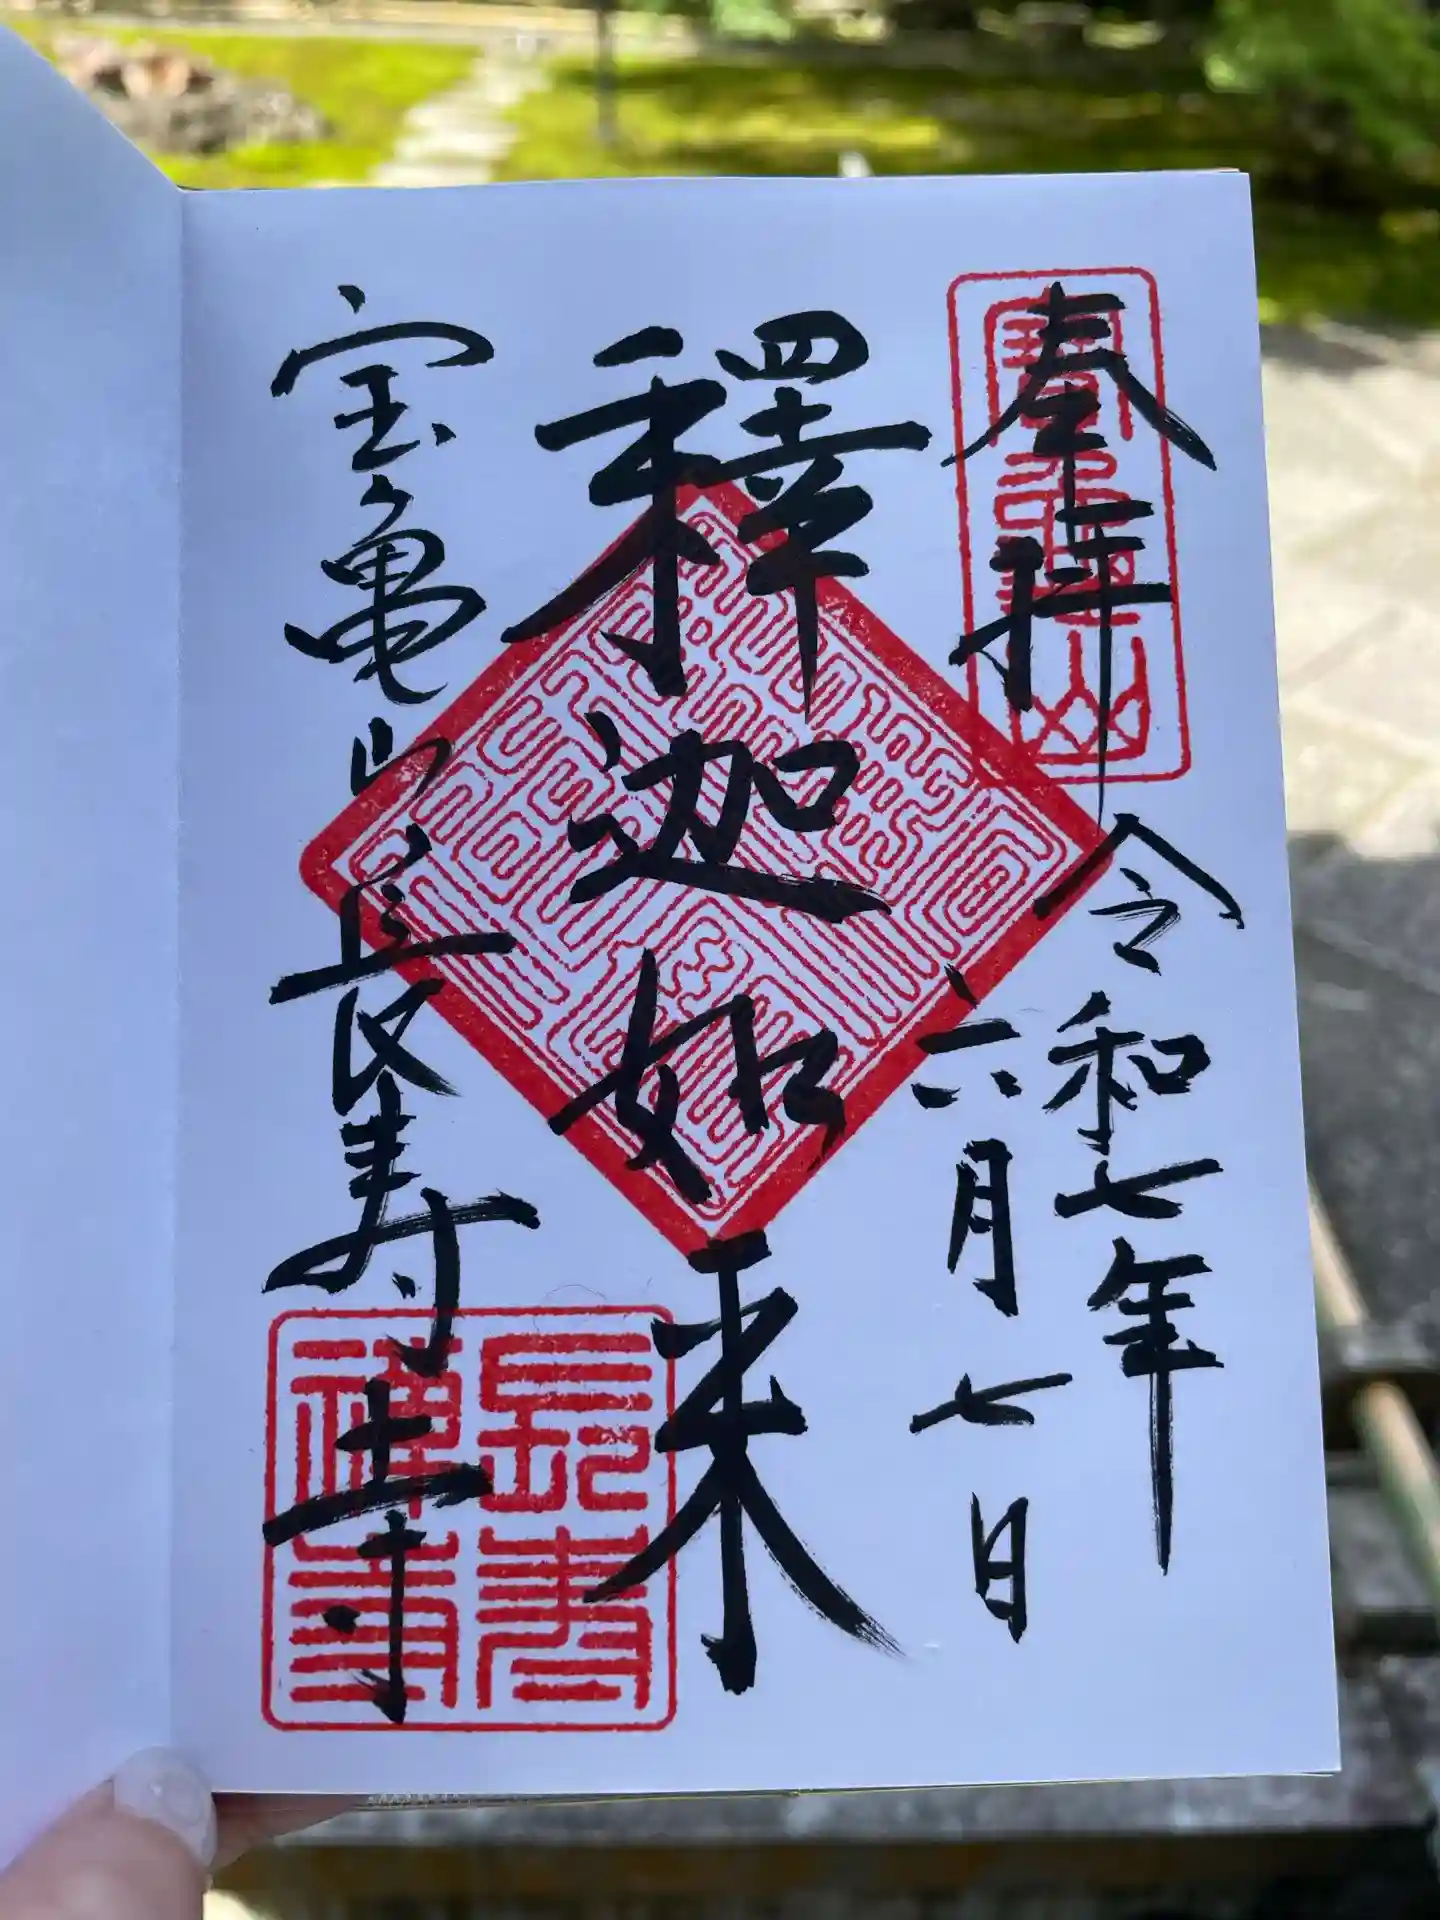 奉拝
令和七年
六月七日
釋迦如来
宝亀山長寿寺
長寿
禅寺